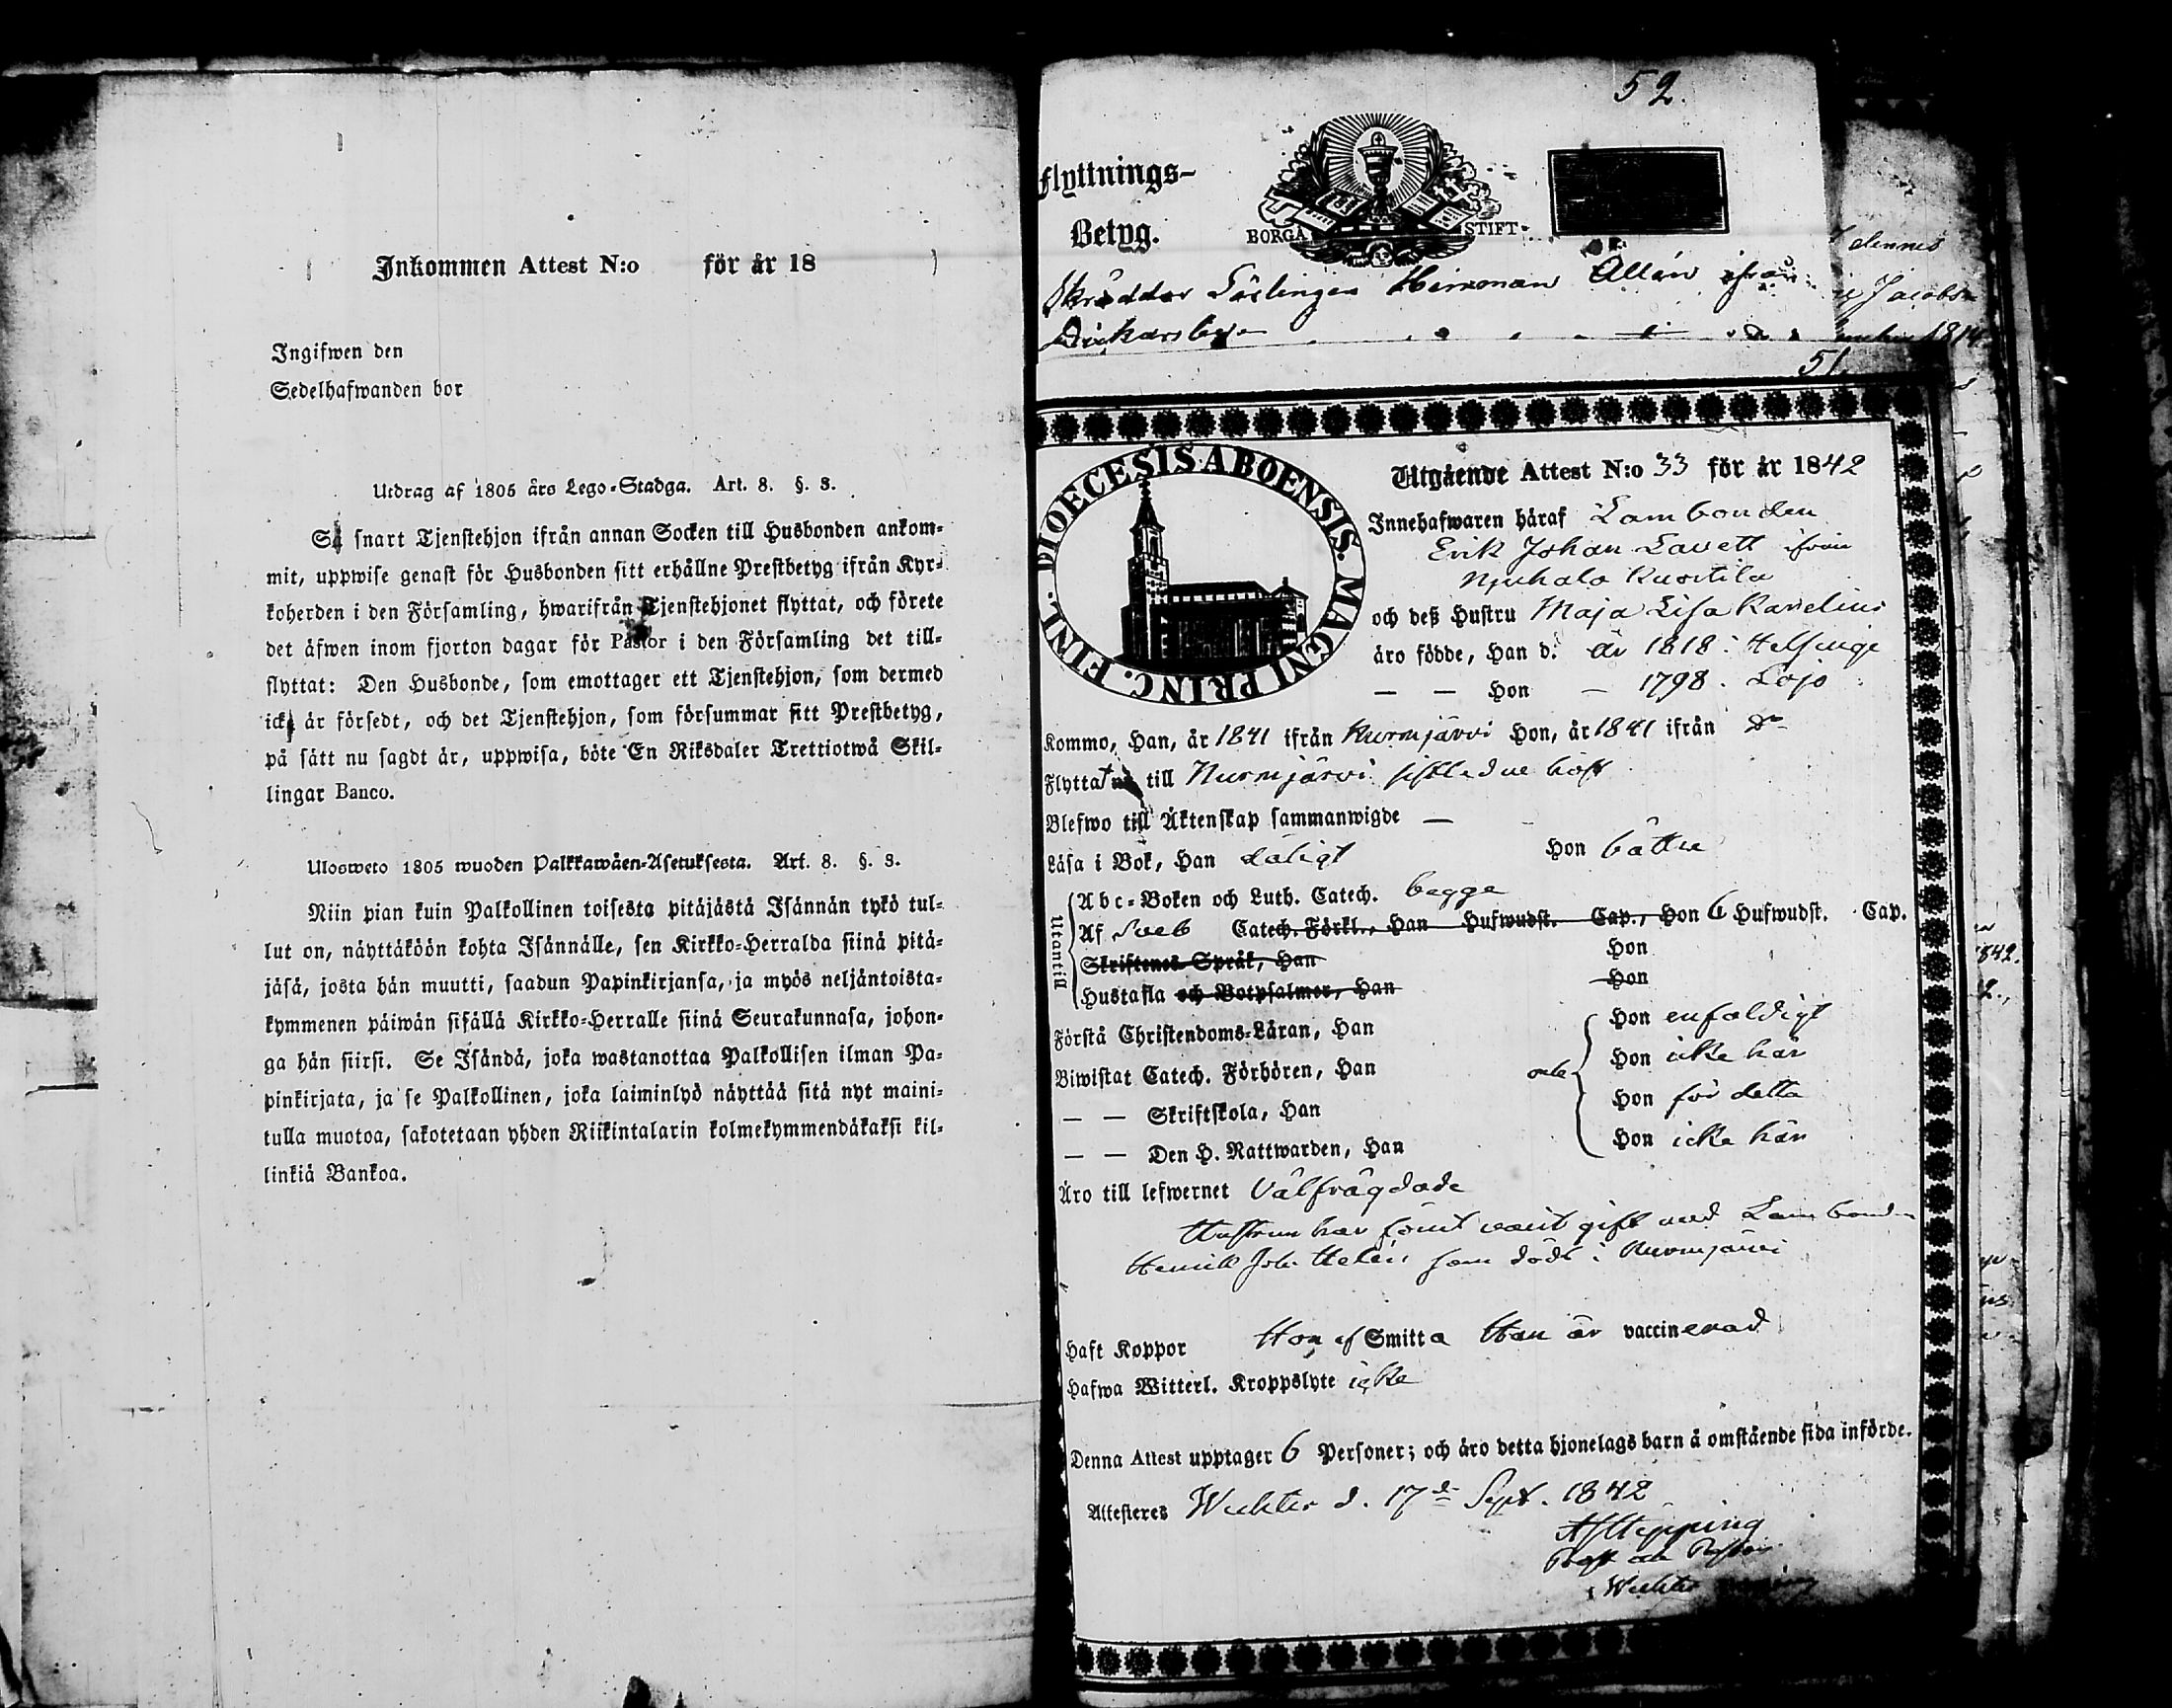 Inkommen Attest N:o för år 18
Ingifwen den
Sedelhafwanden bor
Utdrag af 1805 års Lego-Stadga. Art. 8. §. 3.
Så snart Tjenstehjon ifrån annan Socken till Husbonden ankom-
mit, uppwise genast för Husbonden sitt erhållne Prestbetyg ifrån Kyr-
koherden i den Församling, hwarifrån Tjenstehjonet flyttat, och förete
det äfwen inom fjorton dagar för Pastor i den Församling det till-
flyttat: Den Husbonde, som emottager ett Tjenstehjon, som dermed
icke är försedt, och det Tjenstehjon, som försummar sitt Prestbetyg,
på sätt nu sagdt är, uppwisa, böte En Riksdaler Trettiotwå Skil-
lingar Banco.
Ulosweto 1805 wuoden Palkkawäen-Asetuksesta. Art. 8. §. 3.
Niin pian kuin Palkollinen toisesta pitäjästä Isännän tykö tul-
lut on, näyttäköön kohta Isännälle, sen Kirkko-Herralda siinä pitä-
jäsä, josta hän muutti, saadun Papinkirjansa, ja myös neljäntoista-
kymmenen päiwän sisällä Kirkko-Herralle siinä Seurakunnasa, johon-
ga hän siirsi. Se Isändä, joka wastanottaa Palkollisen ilman Pa-
pinkirjata, ja se Palkollinen, joka laiminlyö näyttää sitä nyt maini-
tulla muotoa, sakotetaan yhden Riikintalarin kolmekymmendäkaksi kil-
linkiä Bankoa.
52.
Flyttnings-
Betyg.
BORGÅ STIFT
Skräddar Lärlingen Herman Allén ifrån
51
DIOECESIS ABOENSIS. MAGNI PRINC. FINL.
Utgående Attest N:o 33 för år 1842
Innehafwaren häraf Lambonden
Erik Johan Lavett ifrån
Njuhala Kuortila
och deß Hustru Maja Lisa Karelius
äro födde, Han d. år 1818. Helsinge
— — Hon — 1798. Lojo
Kommo, Han, år 1841 ifrån Nurmjärvi Hon, år 1841 ifrån do
Flytta nu till Nurmjärvi sistledne höst
Blefwo till Äktenskap sammanwigde —
Läsa i Bok, Han dåligt Hon bättre
Utantill
Abc-Boken och Luth. Catech. begge
Af Sveb Catech. Förkl., Han Hufwudst. Cap., Hon 6 Hufwudst. Cap.
Skriftenes Språk, Han Hon
Hustafla och Botpsalmer, Han Hon
Förstå Christendoms-Läran, Han Hon enfaldigt
Biwistat Catech. Förhören, Han Hon icke här
— — Skriftskola, Han Hon för detta
— — Den H. Nattwarden, Han Hon icke här
Äro till lefwernet Välfrägdade
Hustrun har förut varit gift med Lambonden
Henrik Joh. Helén som dödt i Nurmjärvi
Haft Koppor Hon af Smitta Han är vaccinerad
Hafwa Witterl. Kroppslyte icke
Denna Attest upptager 6 Personer; och äro detta hjonelags barn å omstående sida införde.
Attesteres Wichtis d. 17de Sept. 1842